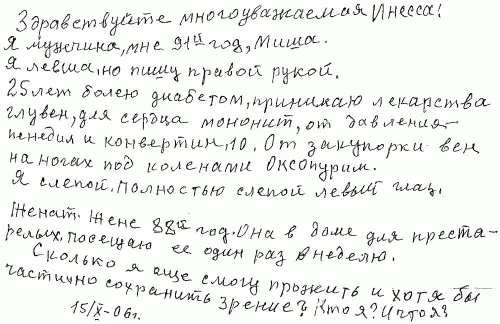 Здравствуйте многоуважаемая Инесса!
Я мужчина, мне 91й год, Миша.
Я левша, но пишу правой рукой.
25 лет болею диабетом, принимаю лекарства
глувен, для сердца мононит, от давления-
пенедил и конвертин,10. От закупорки вен
на ногах под коленами Оксопурим.
Я слепой. Полностью слепой левый глаз.
Женат. Жене 88й год. Она в доме для преста-
релых, посещаю ее один раз в неделю.
Сколько я еще смогу прожить и хотя бы
частично сохранить зрение? Кто я? И что я?
15/X-06г.